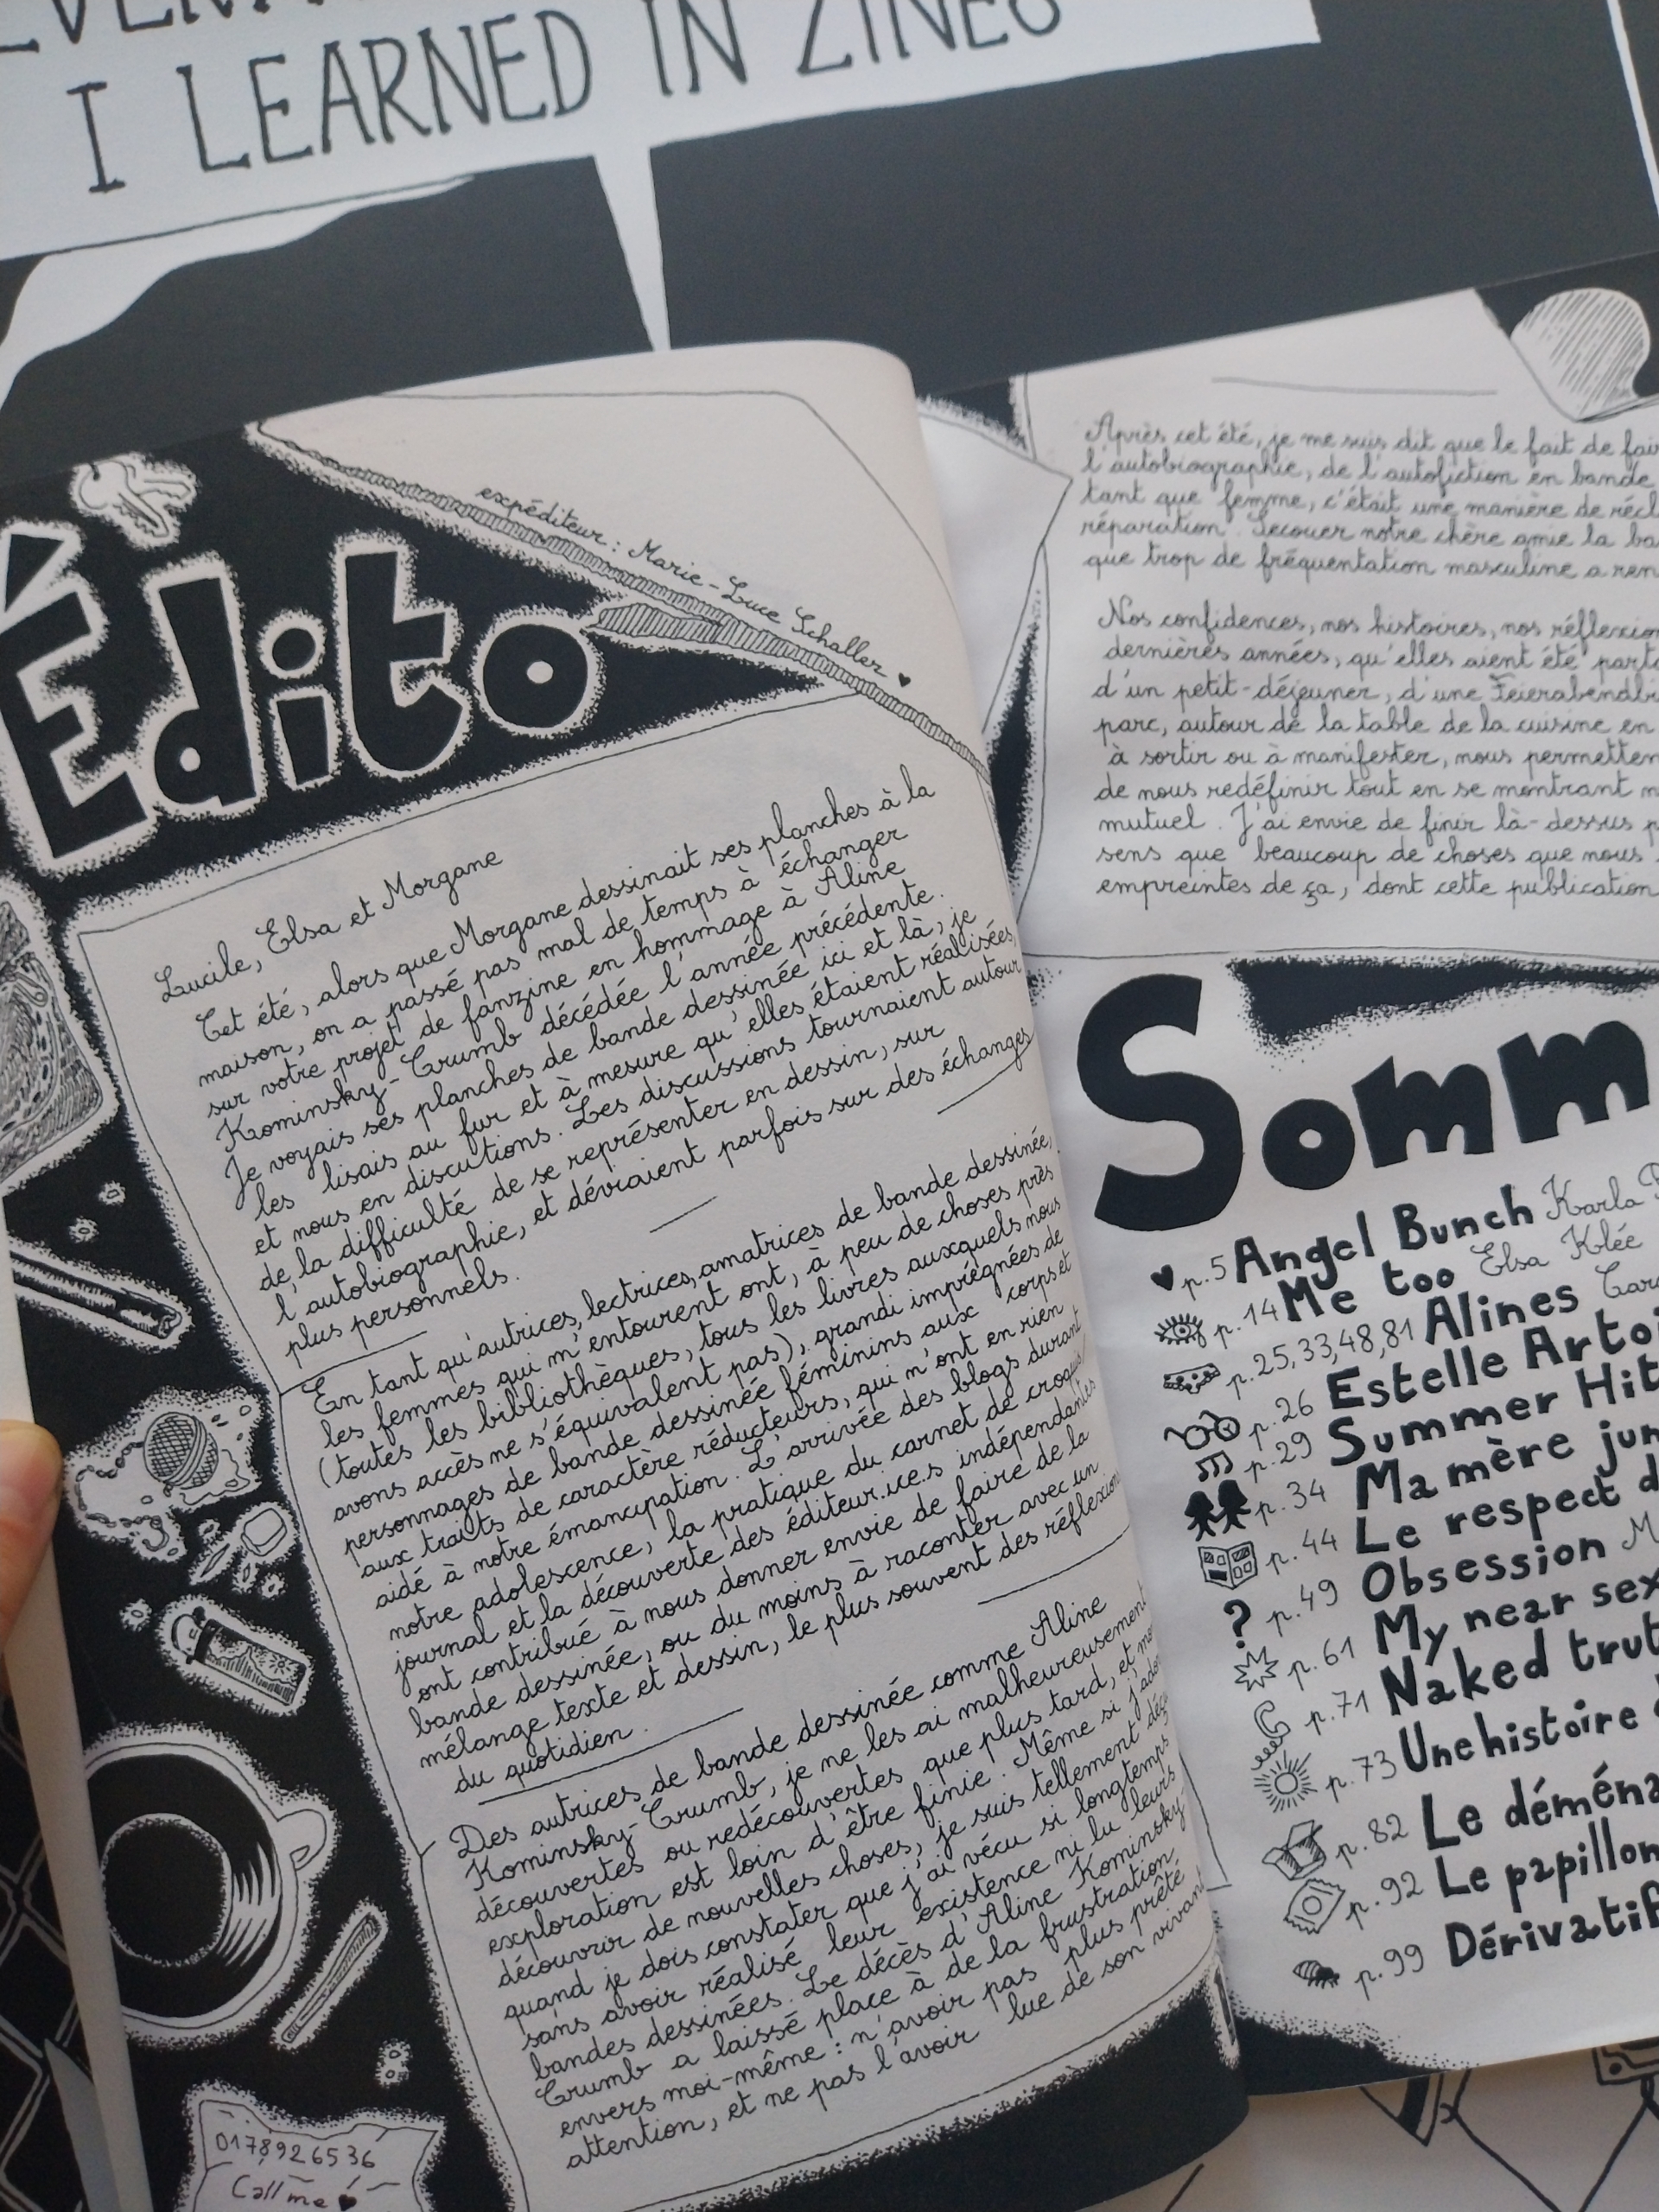 I LEARNED IN ZINES
Édito
expéditeur : Marie-Luce Schaller ♥
Lucile, Elsa et Morgane
Cet été, alors que Morgane dessinait ses planches à la
maison, on a passé pas mal de temps à échanger
sur votre projet de fanzine en hommage à Aline
Kominsky-Crumb décédée l'année précédente.
Je voyais ses planches de bande dessinée ici et là, je
les lisais au fur et à mesure qu'elles étaient réalisées,
et nous en discutions. Les discussions tournaient autour
de la difficulté de se représenter en dessin, sur
l'autobiographie, et dévraient parfois sur des échanges
plus personnels.
En tant qu'autrices, lectrices, amatrices de bande dessinée,
les femmes qui m'entourent ont, à peu de choses près
(toutes les bibliothèques, tous les livres auxquels nous
avons accès ne s'équivalent pas), grandi imprégnées de
personnages de bande dessinée féminins aux corps et
aux traits de caractère réducteurs, qui n'ont en rien
aidé à notre émancipation. L'arrivée des blogs durant
notre adolescence, la pratique du carnet de croquis/
journal et la découverte des éditeur.ice.s indépendantes
ont contribué à nous donner envie de faire de la
bande dessinée, ou du moins à raconter avec un
mélange texte et dessin, le plus souvent des réflexions
du quotidien.
Des autrices de bande dessinée comme Aline
Kominsky-Crumb, je ne les ai malheureusement
découvertes ou redécouvertes que plus tard, et mon
exploration est loin d'être finie. Même si j'adore
découvrir de nouvelles choses, je suis tellement
quand je dois constater que j'ai vécu si longtemps
sans avoir réalisé leur existence ni lu leurs
bandes dessinées. Le décès d'Aline Kominsky
Crumb a laissé place à de la frustration
envers moi-même : n'avoir pas plus prêté
attention, et ne pas l'avoir lue de son vivant
0178926536
Call me ♥
Après cet été, je me suis dit que le fait de
l'autobiographie, de l'autofiction en bande
tant que femme, c'était une manière de
réparation. Secouer notre chère amie la
que trop de fréquentation masculine a
Nos confidences, nos histoires, nos
dernières années, qu'elles aient été
d'un petit-déjeuner, d'une
parc, autour de la table de la cuisine en
à sortir ou à manifester, nous
de nous redéfinir tout en se montrant
mutuel. J'ai envie de finir là-dessus
sens que beaucoup de choses que nous
empreintes de ça, dont cette publication
Somm
♥ p. 5 Angel Bunch Karla
p. 14 Me too Elsa Klée
p. 25, 33, 48, 81 Alines
p. 26 Estelle
p. 29 Summer Hit
p. 34 Ma mère
p. 44 Le respect
? p. 49 Obsession
p. 61 My near
p. 71 Naked
p. 73 Une histoire
p. 82 Le
p. 92 Le papillon
p. 99
1